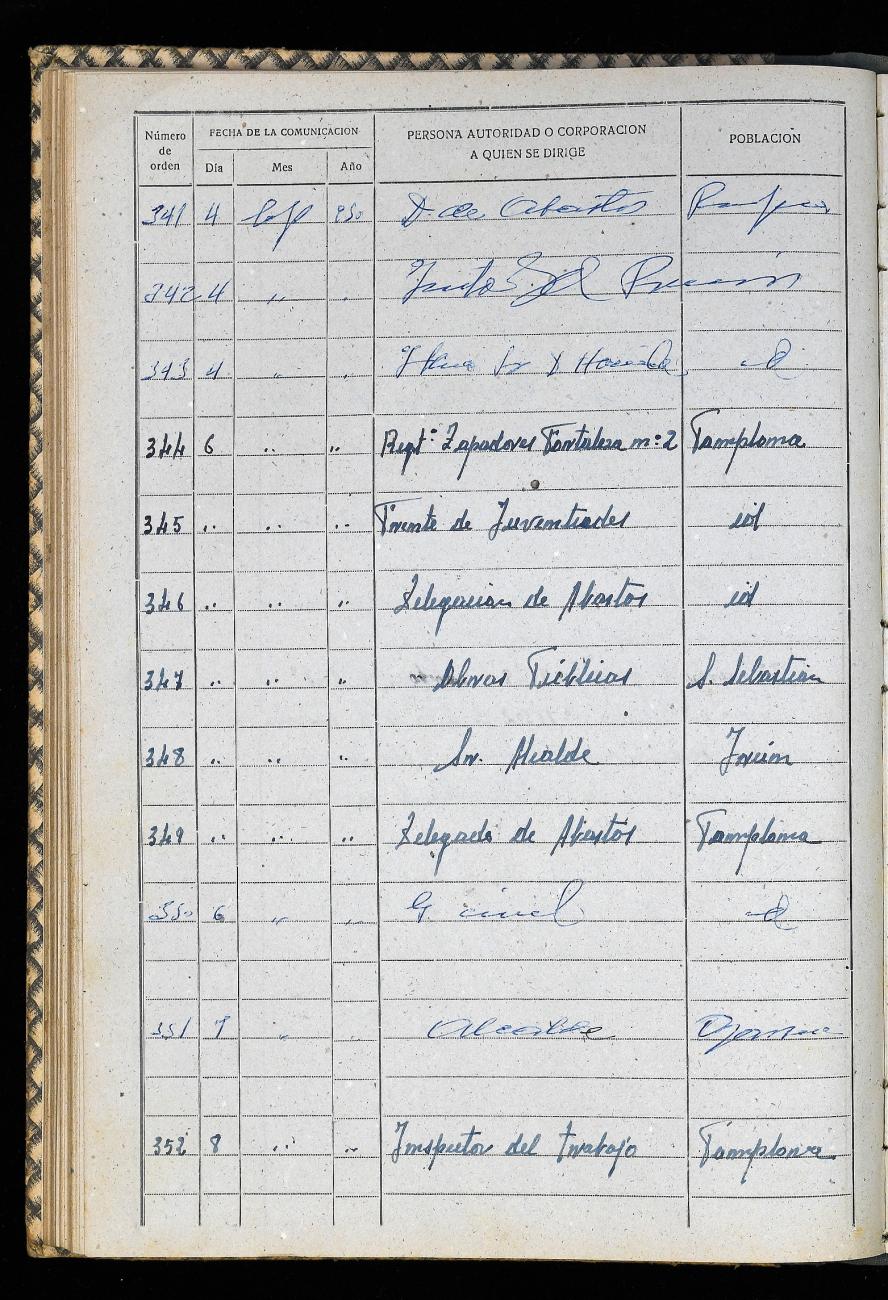 Número de orden FECHA DE LA COMUNICACION PERSONA AUTORIDAD O CORPORACION A QUIEN SE DIRIGE POBLACION
Día Mes Año
341 4 950 D. de Abastos
342 4 " "
343 4 " " id
344 6 " " Regtº Zapadores Fortaleza nº 2 Pamplona
345 " " " Frente de Juventudes id
346 " " " Delegacion de Abastos id
347 " " " Obras Públicas S. Sebastian
348 " " " Sr. Alcalde Irún
349 " " " Delegado de Abastos Pamplona
350 6 " " G civil id
351 7 " " Alcalde
352 8 " " Inspector del trabajo Pamplona